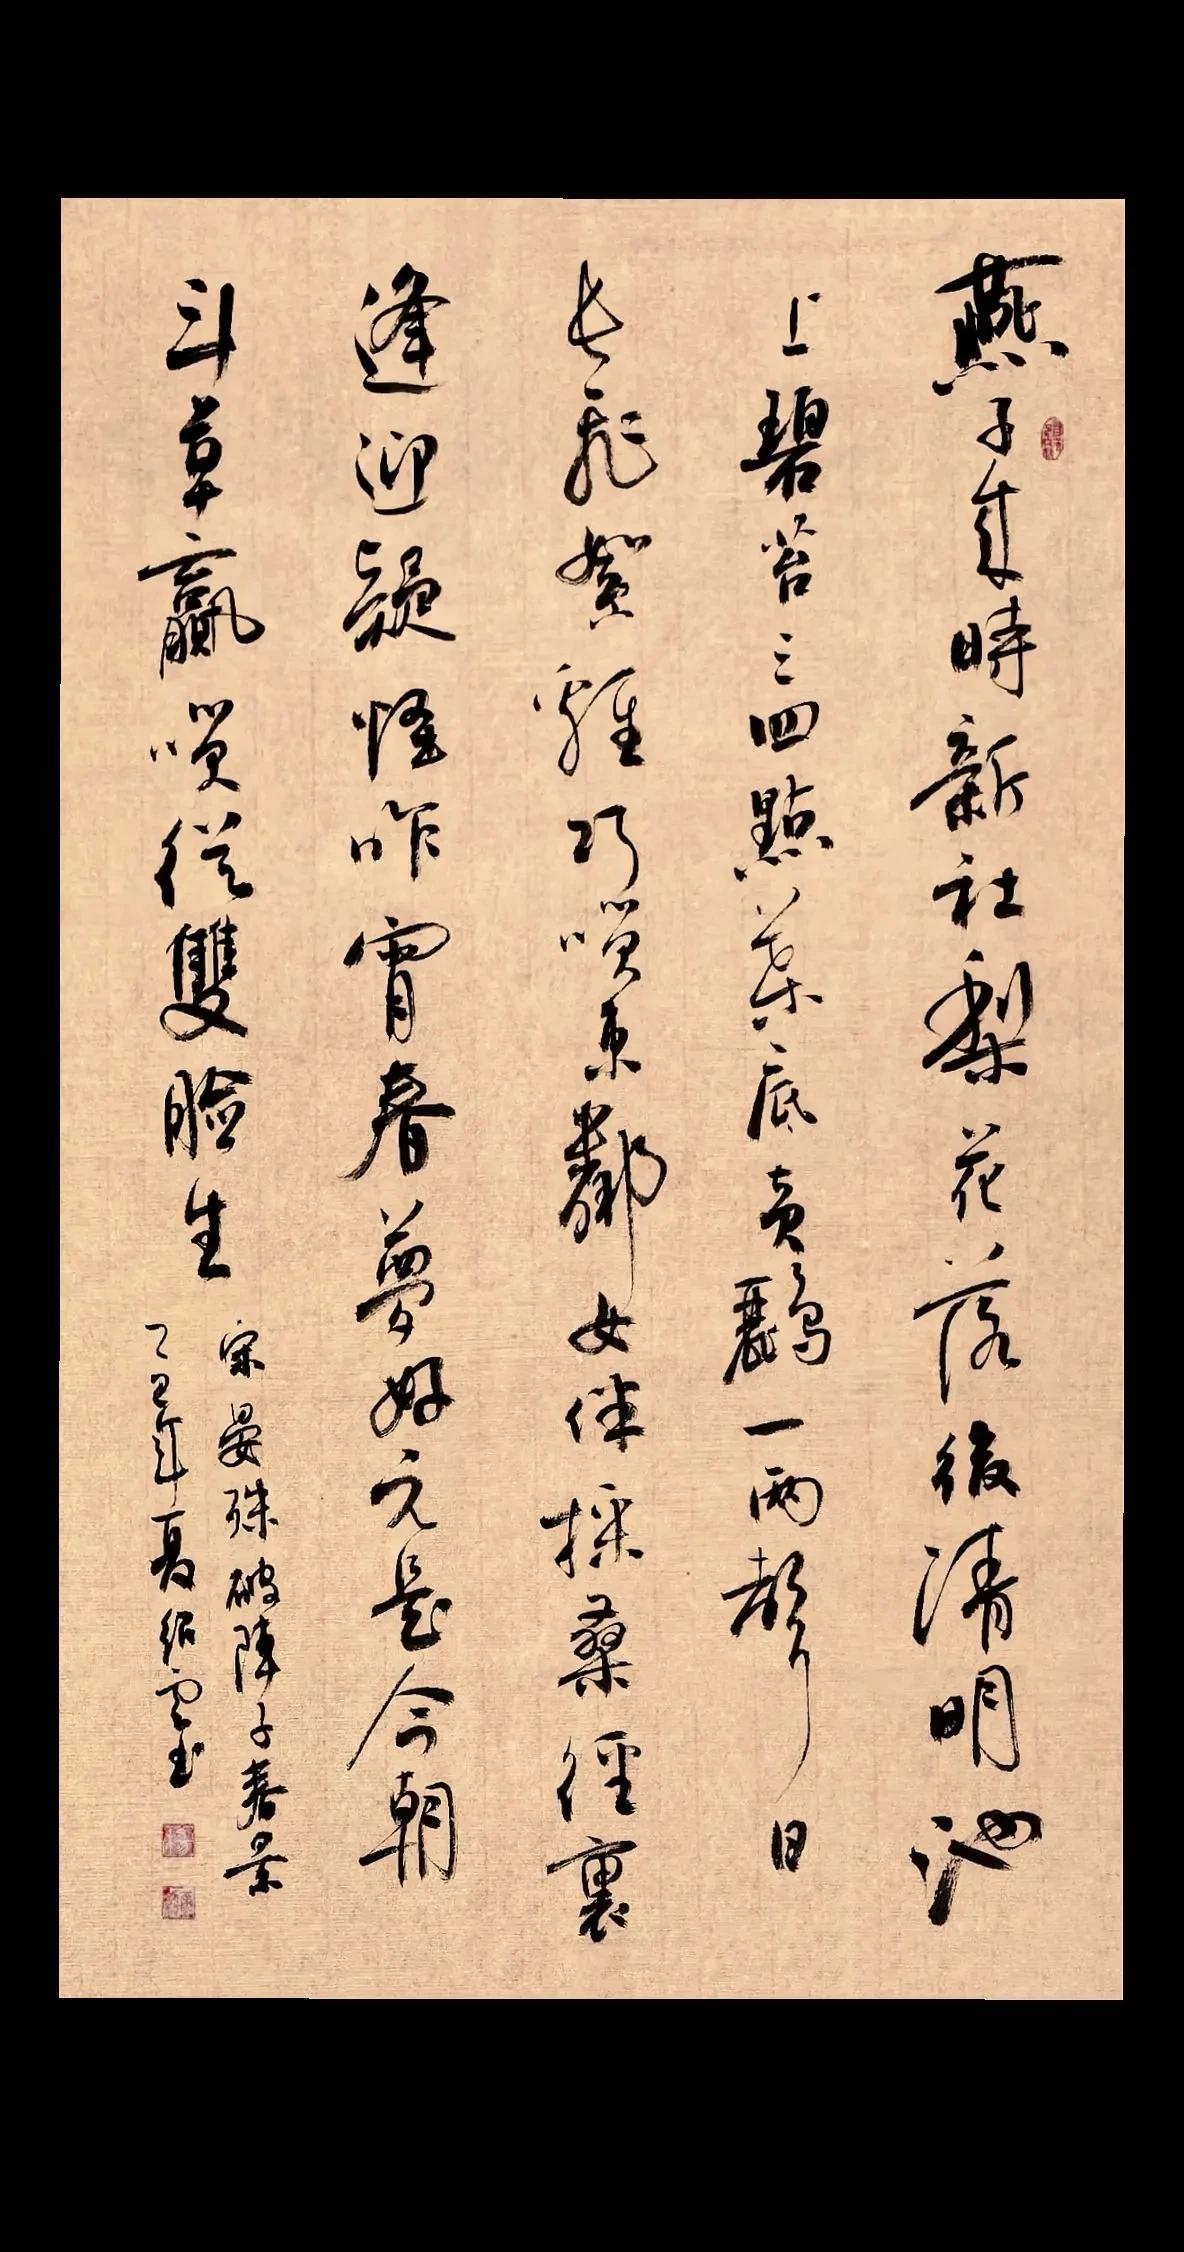 燕子來時新社梨花落後清明池
上碧苔三四點葉底黃鸝一兩聲日
長飛絮輕巧咲東鄰女伴採桑徑裏
逢迎疑怪昨宵春夢好元是今朝
斗草贏咲從雙臉生
宋晏殊破陣子春景
乙巳年夏紹雲書